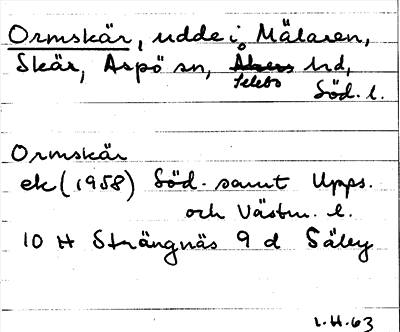 Ormskär, udde i Mälaren,
Skär, Aspö sn, Åkers hd,
Selebo
Söd. l.
Ormskär
ek (1958) Söd. samt Upps.
och Västm. l.
10 H Strängnäs 9 d Säley
L.H.63